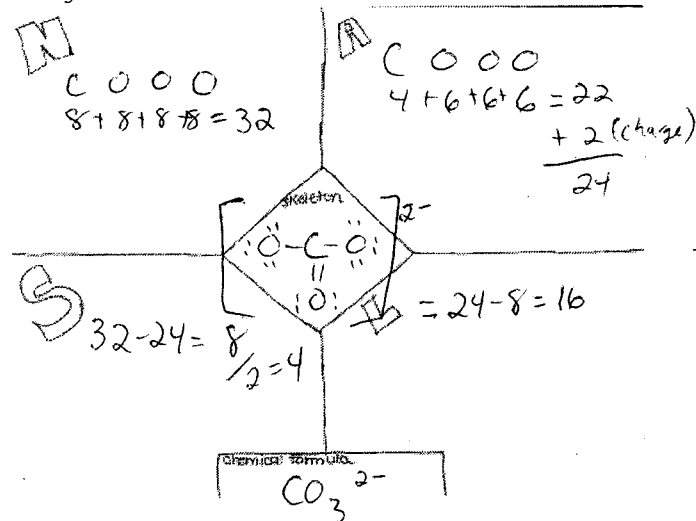 N
C O O O
8 + 8 + 8 + 8 = 32
A
C O O O
4 + 6 + 6 + 6 = 22
+ 2 (charge)
24
skeleton
[:Ö-C-Ö:]2-
||
:O:
S
32-24= 8
/2 = 4
L = 24-8 = 16
Chemical formula
CO3 2-